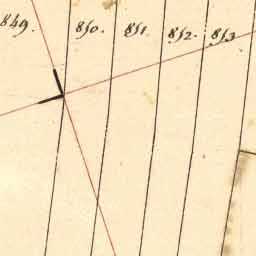 849. 850. 851 852. 853